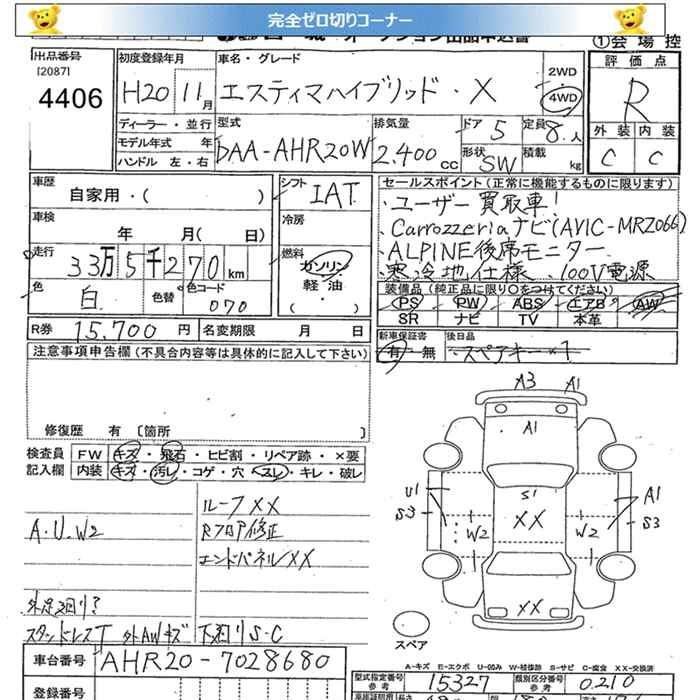 完全ゼロ切りコーナー
①会場控
出品番号
[2087]
4406
初度登録年月
H20 11月
車名・グレード
エスティマハイブリッド・X
2WD
4WD
評価点
R
外装 内装
C C
ディーラー・並行
モデル年式 年
ハンドル 左・右
型式
DAA-AHR20W
排気量
2,400cc
ドア 5
形状 SW
定員 8人
積載 kg
車歴
自家用・( )
車検
年 月( 日)
走行
33万5千270km
色
白
色替
色コード
070
シフト
IAT
冷房
燃料
ガソリン
軽油
( )
セールスポイント(正常に機能するものに限ります)
・ユーザー買取車!
・Carrozzeriaナビ(AVIC-MRZ066)
・ALPINE後席モニター
・寒冷地仕様、100V電源
装備品(純正品に限り○をつけてください)
PS PW ABS エアB AW
SR ナビ TV 本革
R券 15,700円
名変期限 月 日
新車保証書
有・無
後日品
・スペアキー×1
注意事項申告欄(不具合内容等は具体的に記入して下さい)
修復歴 有 〔箇所 〕
検査員
記入欄
FW キズ・飛石・ヒビ割・リペア跡・×要
内装 キズ・汚レ・コゲ・穴・スレ・キレ・破レ
A.U.W2
ルーフXX
Rフロア修正
エンドパネルXX
外足廻り?
スタッドレスT 外AWキズ 下廻りS・C
A3 A1
A1
U1
S3
S1
A1
S3
W2
XX
W2
XX
スペア
A-キズ E-エクボ U-凹み W-補修跡 S-サビ C-腐食 XX-交換済
車台番号
AHR20-7028680
登録番号
型式指定番号
参考
15327
類別区分番号
参考
0210